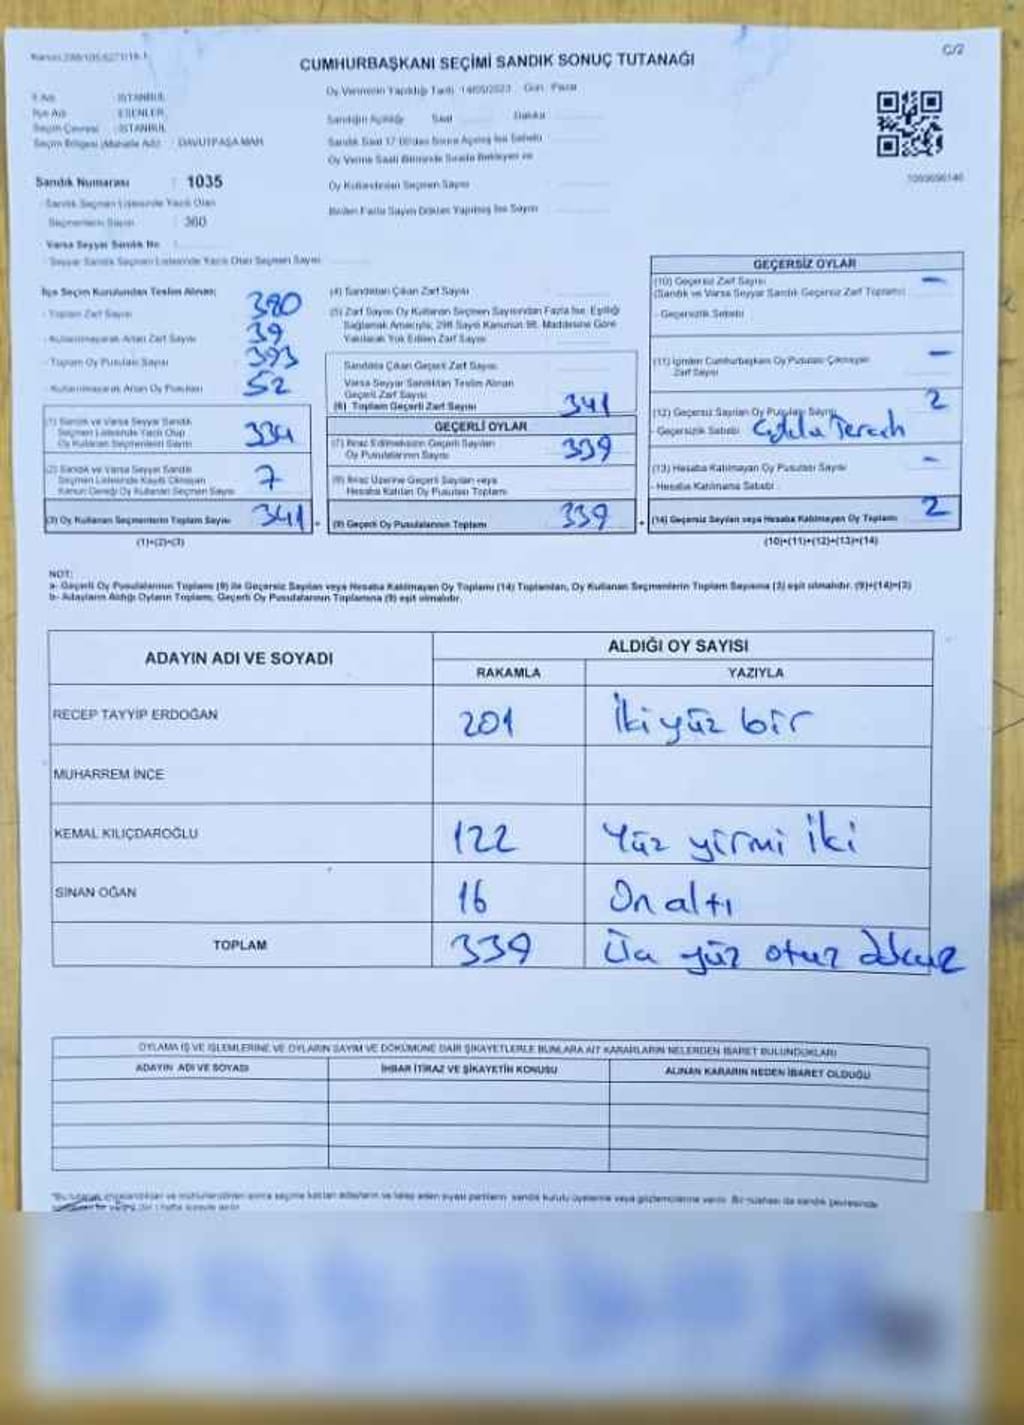 C/2
CUMHURBAŞKANI SEÇİMİ SANDIK SONUÇ TUTANAĞI
Oy Vermenin Yapıldığı Tarih 14/05/2023 Gün: Pazar
İl Adı : İSTANBUL
İlçe Adı ESENLER
Seçim Çevresi : İSTANBUL
Seçim Bölgesi (Mahalle Adı) : DAVUTPAŞA MAH
Sandığın Açıldığı Saat Dakika
Sandık Saat 17:00'den Sonra Açılmış İse Sebebi
Oy Verme Saati Bitiminde Sırada Bekleyen ve
Oy Kullandırılan Seçmen Sayısı
Birden Fazla Sayım Döküm Yapılmış İse Sayısı
Sandık Numarası : 1035
Sandık Seçmen Listesinde Yazılı Olan
Seçmenlerin Sayısı : 360
Varsa Seyyar Sandık No :
Seyyar Sandık Seçmen Listesinde Yazılı Olan Seçmen Sayısı
İlçe Seçim Kurulundan Teslim Alınan;
- Toplam Zarf Sayısı 380
- Kullanılmayarak Artan Zarf Sayısı 39
- Toplam Oy Pusulası Sayısı 393
- Kullanılmayarak Artan Oy Pusulası 52
(1) Sandık ve Varsa Seyyar Sandık
Seçmen Listesinde Yazılı Olup
Oy Kullanan Seçmenlerin Sayısı 334
(2) Sandık ve Varsa Seyyar Sandık
Seçmen Listesinde Kayıtlı Olmayan
Kanun Gereği Oy Kullanan Seçmen Sayısı 7
(3) Oy Kullanan Seçmenlerin Toplam Sayısı 341
(1)+(2)=(3)
(4) Sandıktan Çıkan Zarf Sayısı
(5) Zarf Sayısı Oy Kullanan Seçmen Sayısından Fazla İse, Eşitliği
Sağlamak Amacıyla; 298 Sayılı Kanunun 98. Maddesine Göre
Yakılarak Yok Edilen Zarf Sayısı
Sandıkta Çıkan Geçerli Zarf Sayısı
Varsa Seyyar Sandıktan Teslim Alınan
Geçerli Zarf Sayısı
(6) Toplam Geçerli Zarf Sayısı 341
GEÇERLİ OYLAR
(7) İtiraz Edilmeksizin Geçerli Sayılan
Oy Pusulalarının Sayısı 339
(8) İtiraz Üzerine Geçerli Sayılan veya
Hesaba Katılan Oy Pusulası Toplamı
(9) Geçerli Oy Pusulalarının Toplamı 339
GEÇERSİZ OYLAR
(10) Geçersiz Zarf Sayısı –
(Sandık ve Varsa Seyyar Sandık Geçersiz Zarf Toplamı)
- Geçersizlik Sebebi
(11) İçinden Cumhurbaşkanı Oy Pusulası Çıkmayan –
Zarf Sayısı
(12) Geçersiz Sayılan Oy Pusulası Sayısı 2
- Geçersizlik Sebebi
(13) Hesaba Katılmayan Oy Pusulası Sayısı –
- Hesaba Katılmama Sebebi
(14) Geçersiz Sayılan veya Hesaba Katılmayan Oy Toplamı 2
(10)+(11)+(12)+(13)=(14)
NOT:
a- Geçerli Oy Pusulalarının Toplamı (9) ile Geçersiz Sayılan veya Hesaba Katılmayan Oy Toplamı (14) Toplamları, Oy Kullanan Seçmenlerin Toplam Sayısına (3) eşit olmalıdır. (9)+(14)=(3)
b- Adayların Aldığı Oyların Toplamı, Geçerli Oy Pusulalarının Toplamına (9) eşit olmalıdır.
ADAYIN ADI VE SOYADI ALDIĞI OY SAYISI
RAKAMLA YAZIYLA
RECEP TAYYİP ERDOĞAN 201 İki yüz bir
MUHARREM İNCE
KEMAL KILIÇDAROĞLU 122 Yüz yirmi iki
SİNAN OĞAN 16 On altı
TOPLAM 339 Üç yüz otuz dokuz
OYLAMA İŞ VE İŞLEMLERİNE VE OYLARIN SAYIM VE DÖKÜMÜNE DAİR ŞİKAYETLERLE BUNLARA AİT KARARLARIN NELERDEN İBARET BULUNDUKLARI
ADAYIN ADI VE SOYADI İHBAR İTİRAZ VE ŞİKAYETİN KONUSU ALINAN KARARIN NEDEN İBARET OLDUĞU